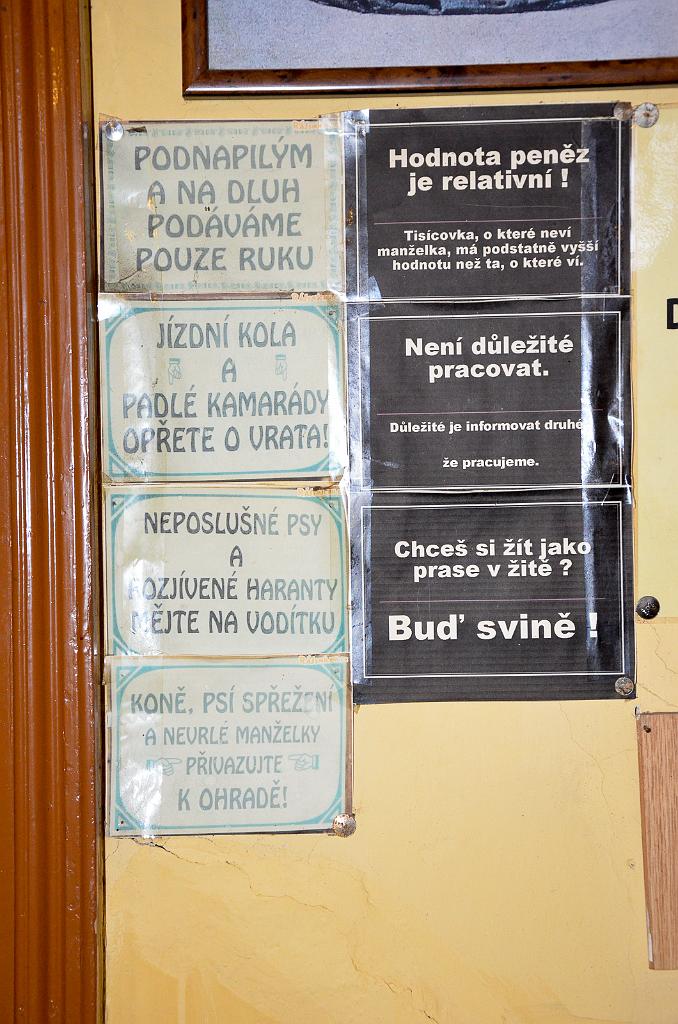 PODNAPILÝM
A NA DLUH
PODÁVÁME
POUZE RUKU
JÍZDNÍ KOLA
A
PADLÉ KAMARÁDY
OPŘETE O VRATA!
NEPOSLUŠNÉ PSY
A
ROZJÍVENÉ HARANTY
MĚJTE NA VODÍTKU
KONĚ, PSÍ SPŘEŽENÍ
A NEVRLÉ MANŽELKY
PŘIVAZUJTE
K OHRADĚ!
Hodnota peněz
je relativní !
Tisícovka, o které neví
manželka, má podstatně vyšší
hodnotu než ta, o které ví.
Není důležité
pracovat.
Důležité je informovat druhé
že pracujeme.
Chceš si žít jako
prase v žitě ?
Buď svině !